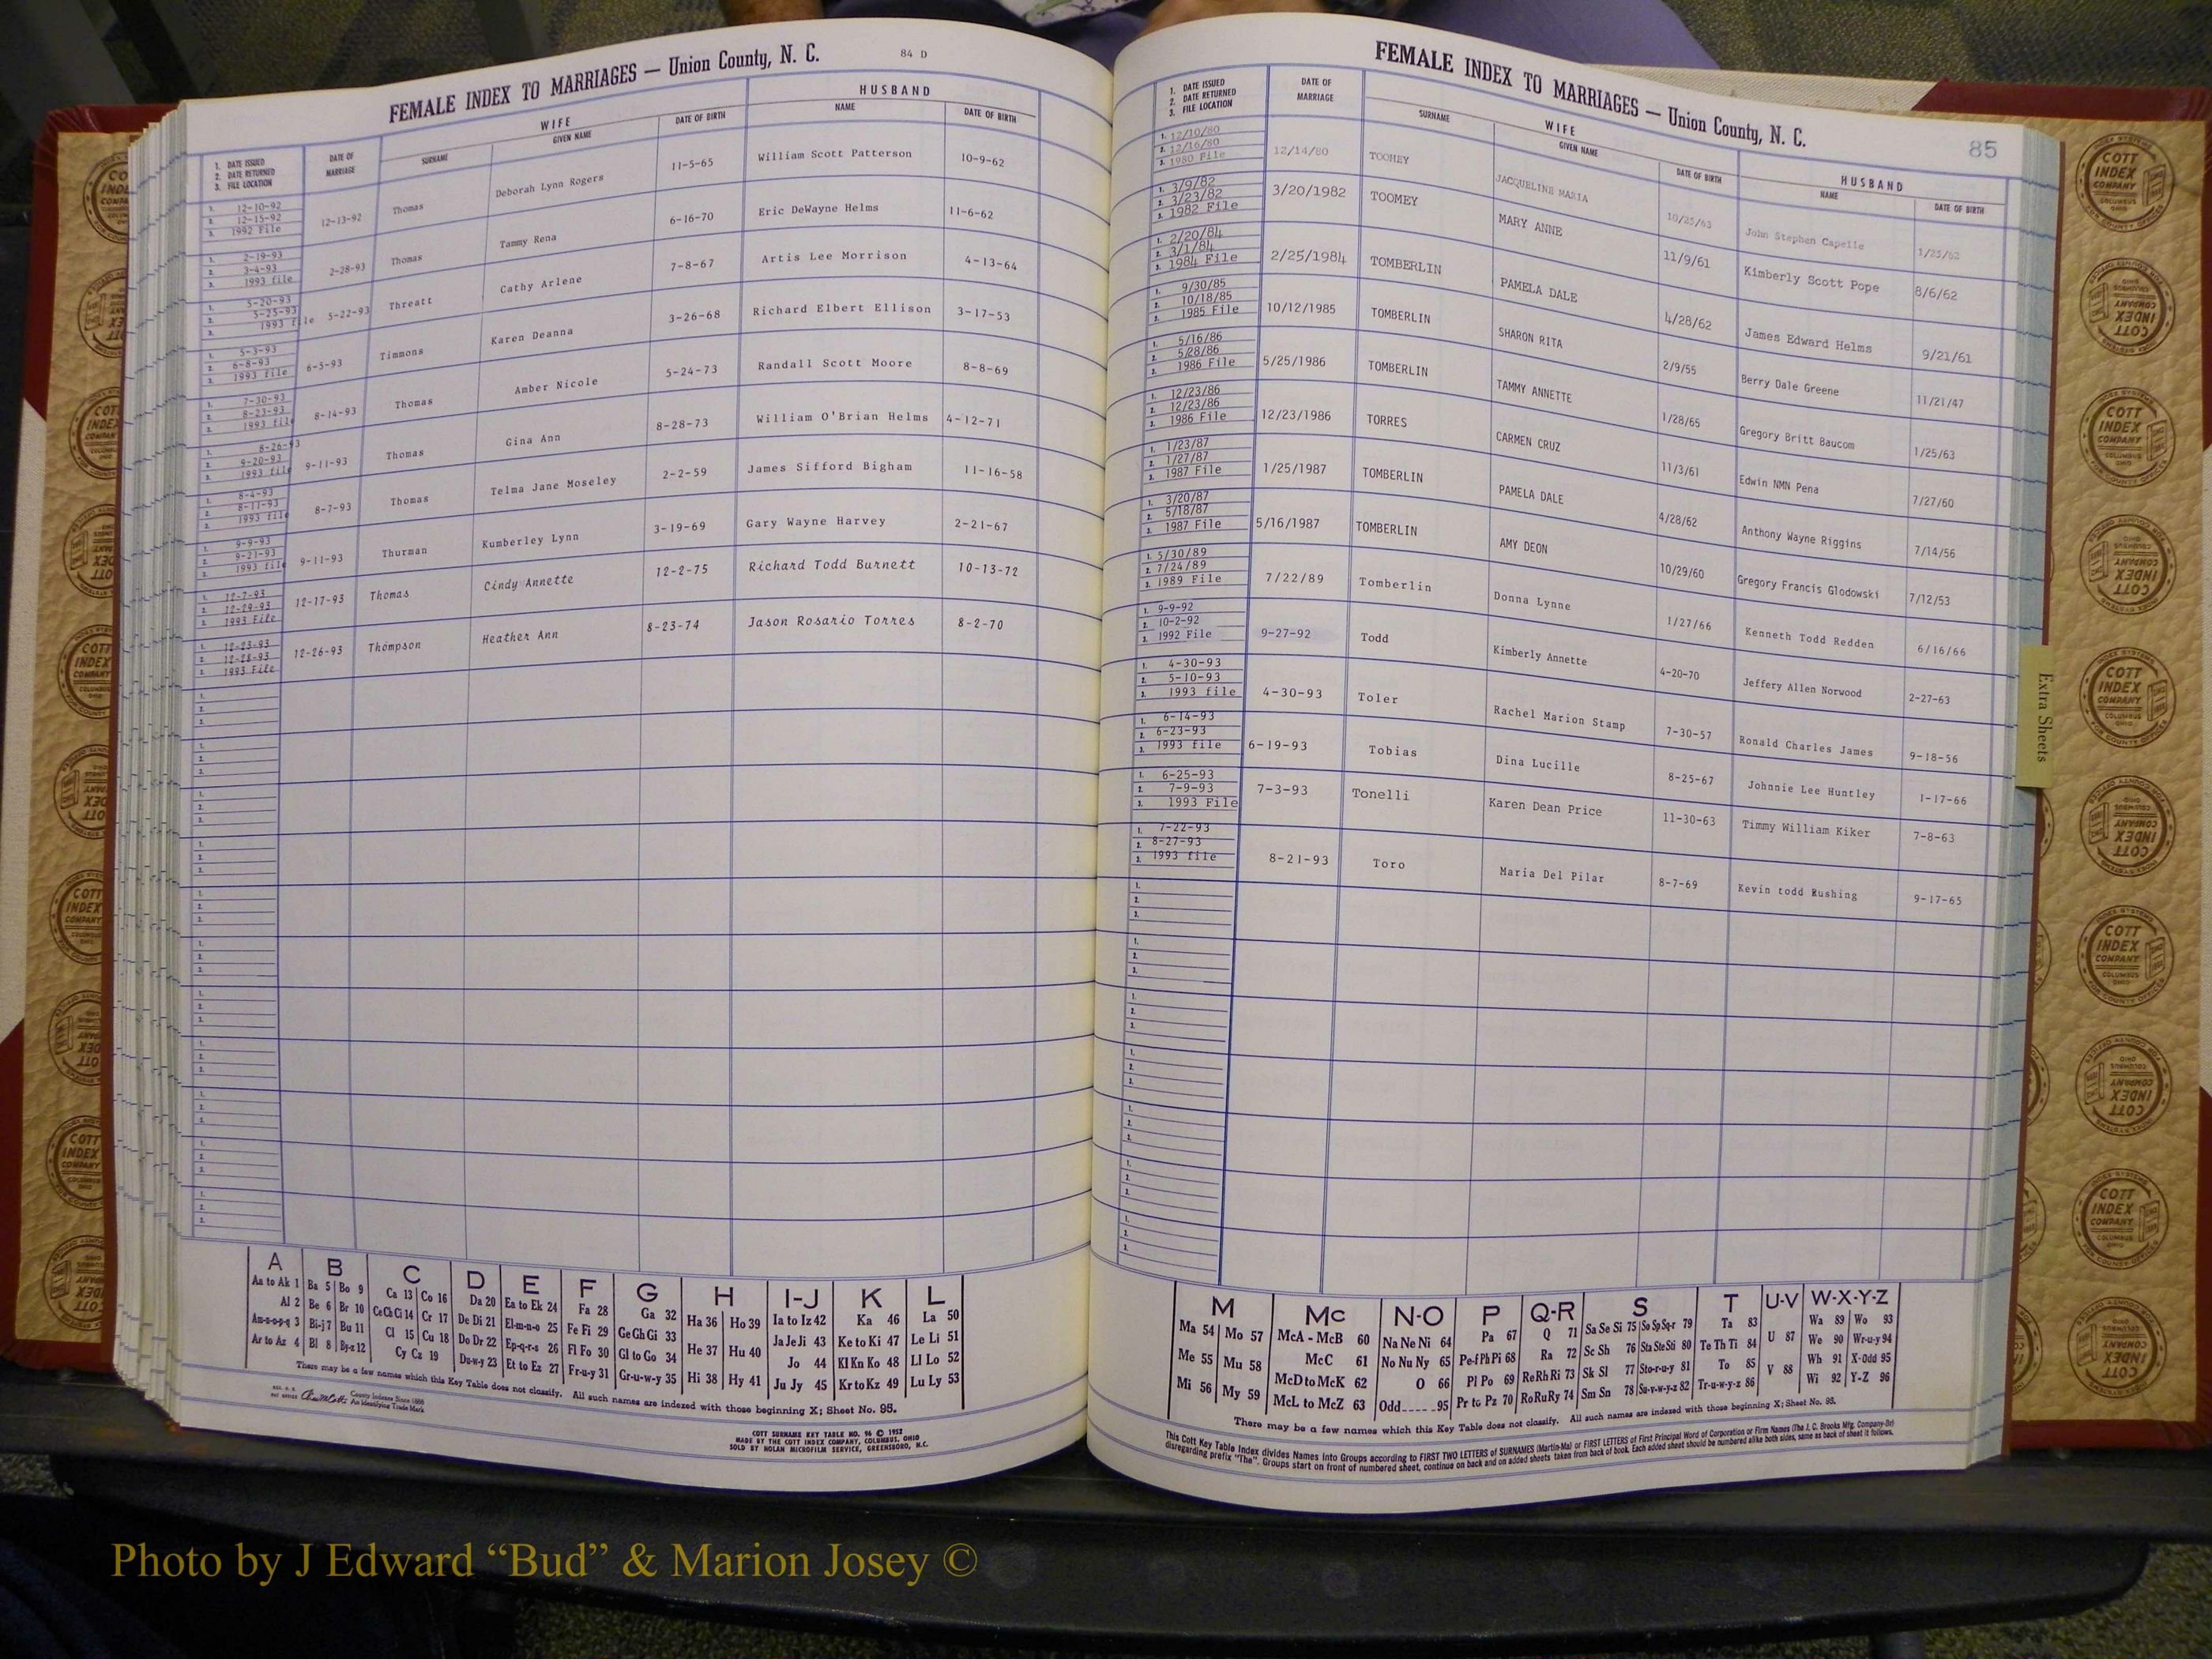 FEMALE INDEX TO MARRIAGES — Union County, N. C. 84 D
1. DATE ISSUED
2. DATE RETURNED
3. FILE LOCATION
DATE OF MARRIAGE
WIFE
SURNAME GIVEN NAME DATE OF BIRTH
HUSBAND
NAME DATE OF BIRTH
1. 12-10-92
2. 12-15-92
3. 1992 File
12-13-92 Thomas Deborah Lynn Rogers 11-5-65 William Scott Patterson 10-9-62
1. 2-19-93
2. 3-4-93
3. 1993 file
2-28-93 Thomas Tammy Rena 6-16-70 Eric DeWayne Helms 11-6-62
1. 5-20-93
2. 5-25-93
3. 1993 file
5-22-93 Threatt Cathy Arlene 7-8-67 Artis Lee Morrison 4-13-64
1. 5-3-93
2. 6-8-93
3. 1993 file
6-5-93 Timmons Karen Deanna 3-26-68 Richard Elbert Ellison 3-17-53
1. 7-30-93
2. 8-23-93
3. 1993 file
8-14-93 Thomas Amber Nicole 5-24-73 Randall Scott Moore 8-8-69
1. 8-26-93
2. 9-20-93
3. 1993 file
9-11-93 Thomas Gina Ann 8-28-73 William O'Brian Helms 4-12-71
1. 8-4-93
2. 8-11-93
3. 1993 file
8-7-93 Thomas Telma Jane Moseley 2-2-59 James Sifford Bigham 11-16-58
1. 9-9-93
2. 9-21-93
3. 1993 file
9-11-93 Thurman Kumberley Lynn 3-19-69 Gary Wayne Harvey 2-21-67
1. 12-7-93
2. 12-29-93
3. 1993 File
12-17-93 Thomas Cindy Annette 12-2-75 Richard Todd Burnett 10-13-72
1. 12-23-93
2. 12-28-93
3. 1993 File
12-26-93 Thompson Heather Ann 8-23-74 Jason Rosario Torres 8-2-70
A B C D E F G H I-J K L
Aa to Ak 1 Ba 5 Bo 9 Ca 13 Co 16 Da 20 Ea to Ek 24 Fa 28 Ga 32 Ha 36 Ho 39 Ia to Iz 42 Ka 46 La 50
Al 2 Be 6 Br 10 Ce Ch Ci 14 Cr 17 De Di 21 El-m-n-o 25 Fe Fi 29 Ge Gh Gi 33 He 37 Hu 40 Ja Je Ji 43 Ke to Ki 47 Le Li 51
Am-n-o-p-q 3 Bi-j 7 Bu 11 Cl 15 Cu 18 Do Dr 22 Ep-q-r-s 26 Fl Fo 30 Gl to Go 34 Hi 38 Hy 41 Jo 44 Kl Kn Ko 48 Ll Lo 52
Ar to Az 4 Bl 8 By-z 12 Cy Cz 19 Du-w-y 23 Et to Ez 27 Fr-u-y 31 Gr-u-w-y 35 Ju Jy 45 Kr to Kz 49 Lu Ly 53
There may be a few names which this Key Table does not classify. All such names are indexed with those beginning X; Sheet No. 95.
County Indexes Since 1888
An Identifying Trade Mark
COTT SURNAME KEY TABLE NO. 96 © 1952
MADE BY THE COTT INDEX COMPANY, COLUMBUS, OHIO
SOLD BY NOLAN MICROFILM SERVICE, GREENSBORO, N.C.
FEMALE INDEX TO MARRIAGES — Union County, N. C. 85
1. DATE ISSUED
2. DATE RETURNED
3. FILE LOCATION
DATE OF MARRIAGE
WIFE
SURNAME GIVEN NAME DATE OF BIRTH
HUSBAND
NAME DATE OF BIRTH
1. 12/10/80
2. 12/16/80
3. 1980 File
12/14/80 TOOMEY JACQUELINE MARIA 10/25/63 John Stephen Capelle 1/25/62
1. 3/9/82
2. 3/23/82
3. 1982 File
3/20/1982 TOOMEY MARY ANNE 11/9/61 Kimberly Scott Pope 8/6/62
1. 2/20/84
2. 3/1/84
3. 1984 File
2/25/1984 TOMBERLIN PAMELA DALE 4/28/62 James Edward Helms 9/21/61
1. 9/30/85
2. 10/18/85
3. 1985 File
10/12/1985 TOMBERLIN SHARON RITA 2/9/55 Berry Dale Greene 11/21/47
1. 5/16/86
2. 5/28/86
3. 1986 File
5/25/1986 TOMBERLIN TAMMY ANNETTE 1/28/65 Gregory Britt Baucom 1/25/63
1. 12/23/86
2. 12/23/86
3. 1986 File
12/23/1986 TORRES CARMEN CRUZ 11/3/61 Edwin NMN Pena 7/27/60
1. 1/23/87
2. 1/27/87
3. 1987 File
1/25/1987 TOMBERLIN PAMELA DALE 4/28/62 Anthony Wayne Riggins 7/14/56
1. 3/20/87
2. 5/18/87
3. 1987 File
5/16/1987 TOMBERLIN AMY DEON 10/29/60 Gregory Francis Glodowski 7/12/53
1. 5/30/89
2. 7/24/89
3. 1989 File
7/22/89 Tomberlin Donna Lynne 1/27/66 Kenneth Todd Redden 6/16/66
1. 9-9-92
2. 10-2-92
3. 1992 File
9-27-92 Todd Kimberly Annette 4-20-70 Jeffery Allen Norwood 2-27-63
1. 4-30-93
2. 5-10-93
3. 1993 file
4-30-93 Toler Rachel Marion Stamp 7-30-57 Ronald Charles James 9-18-56
1. 6-14-93
2. 6-23-93
3. 1993 file
6-19-93 Tobias Dina Lucille 8-25-67 Johnnie Lee Huntley 1-17-66
1. 6-25-93
2. 7-9-93
3. 1993 File
7-3-93 Tonelli Karen Dean Price 11-30-63 Timmy William Kiker 7-8-63
1. 7-22-93
2. 8-27-93
3. 1993 file
8-21-93 Toro Maria Del Pilar 8-7-69 Kevin todd Rushing 9-17-65
Extra Sheets
M Mc N-O P Q-R S T U-V W-X-Y-Z
Ma 54 Mo 57 McA - McB 60 Na Ne Ni 64 Pa 67 Q 71 Sa Se Si 75 So Sp Sq-r 79 Ta 83 U 87 Wa 89 Wo 93
Me 55 Mu 58 McC 61 No Nu Ny 65 Pe-f Ph Pi 68 Ra 72 Sc Sh 76 Sta Ste Sti 80 Te Th Ti 84 V 88 We 90 Wr-u-y 94
Mi 56 My 59 McD to McK 62 O 66 Pl Po 69 Re Rh Ri 73 Sk Sl 77 Sto-r-u-y 81 To 85 Wh 91 X-Odd 95
McL to McZ 63 Odd 95 Pr to Pz 70 Ro Ru Ry 74 Sm Sn 78 Su-v-w-y-z 82 Tr-u-w-y-z 86 Wi 92 Y-Z 96
There may be a few names which this Key Table does not classify. All such names are indexed with those beginning X; Sheet No. 95.
This Cott Key Table Index divides Names into Groups according to FIRST TWO LETTERS of SURNAMES (Martin-Ma) or FIRST LETTERS of First Principal Word of Corporation or Firm Names (The J. C. Brooks Mfg. Company-Br)
disregarding prefix "The". Groups start on front of numbered sheet, continue on back and on added sheets taken from back of book. Each added sheet should be numbered alike both sides, same as back of sheet it follows.
COTT INDEX COMPANY COLUMBUS OHIO
INDEX SYSTEMS FOR COUNTY OFFICES
Photo by J Edward “Bud” & Marion Josey ©